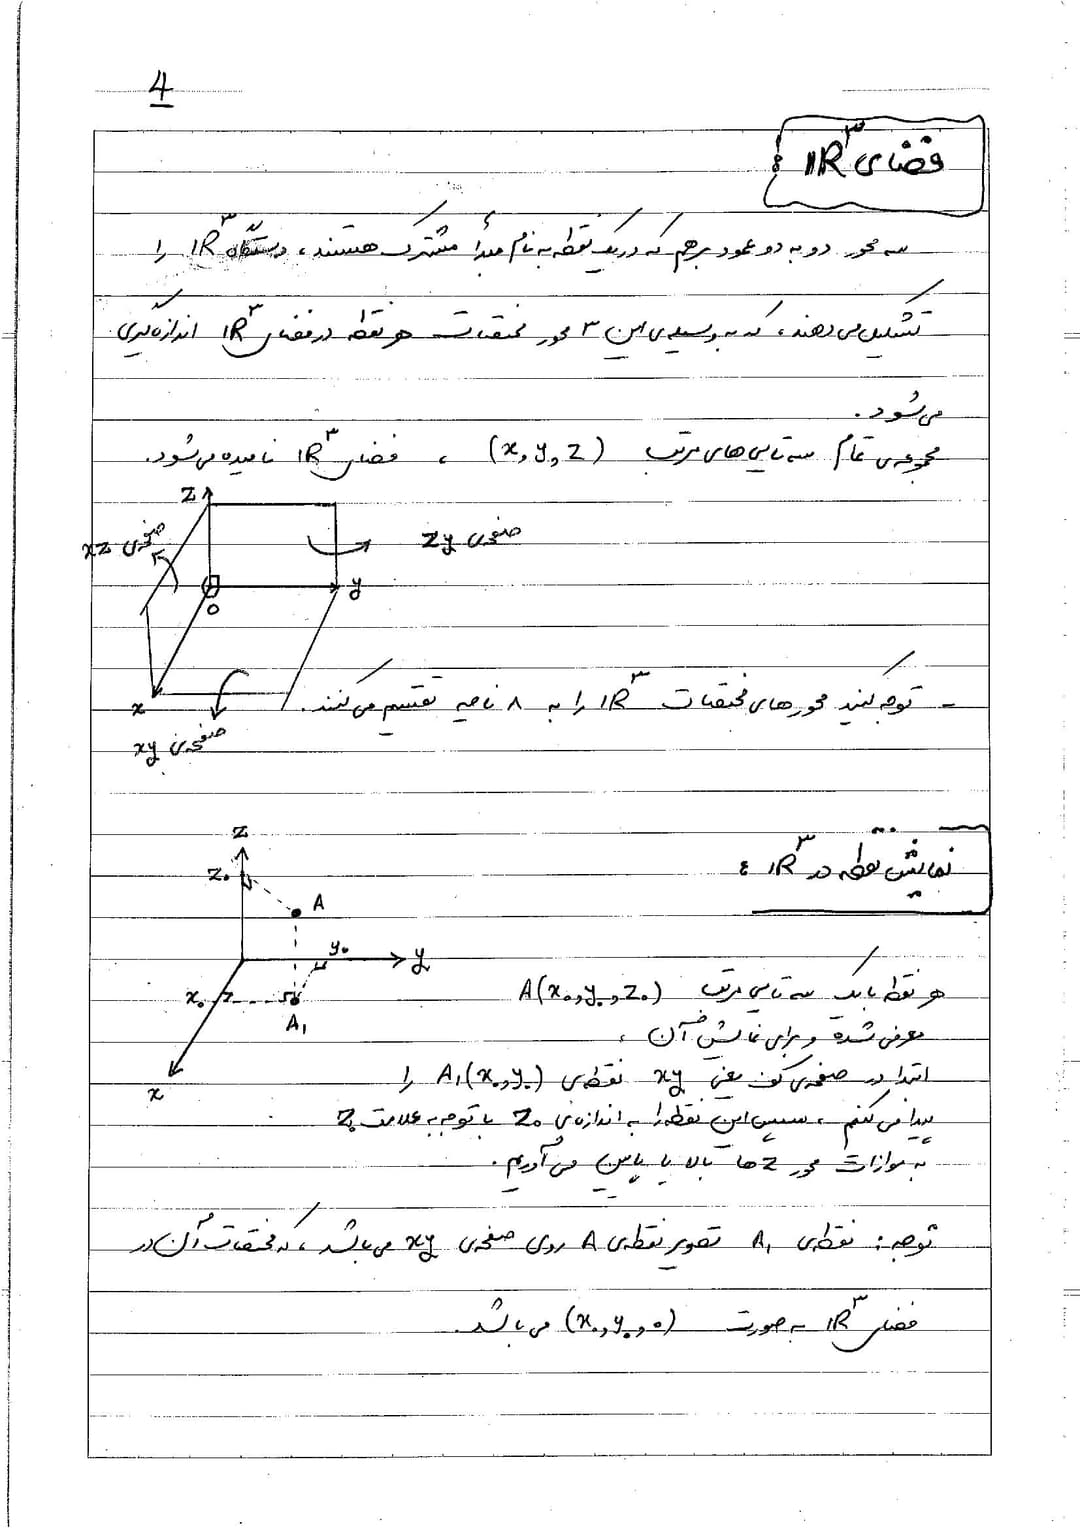 4
فضای IR³ :
سه محور دو به دو عمود برهم که در یک نقطه به نام مبدأ مشترک هستند، دستگاه IR³ را
تشکیل می دهند، که به وسیله‌ی این ۳ محور مختصات هر نقطه در فضای IR³ اندازه گیری
می شود.
مجموعه‌ی تمام سه تایی های مرتب (x, y, z) ، فضای IR³ نامیده می شود.
z
صفحه‌ی xz
صفحه‌ی zy
y
o
x
صفحه‌ی xy
- توجه کنید محورهای مختصات IR³ را به ۸ ناحیه تقسیم می کنند.
نمایش نقطه در IR³ :
z
z₀
A
y₀
y
x₀
A₁
x
هر نقطه با یک سه تایی مرتب A(x₀, y₀, z₀)
معرفی شده و برای نمایش آن ،
ابتدا در صفحه‌ی کف یعنی xy نقطه‌ی A₁(x₀, y₀) را
پیدا می کنیم ، سپس این نقطه را به اندازه‌ی z₀ با توجه به علامت z₀
به موازات محور z ها بالا یا پایین می آوریم.
توجه : نقطه‌ی A₁ تصویر نقطه‌ی A روی صفحه‌ی xy می باشد ، که مختصات آن در
فضای IR³ به صورت (x₀, y₀, 0) می باشد.